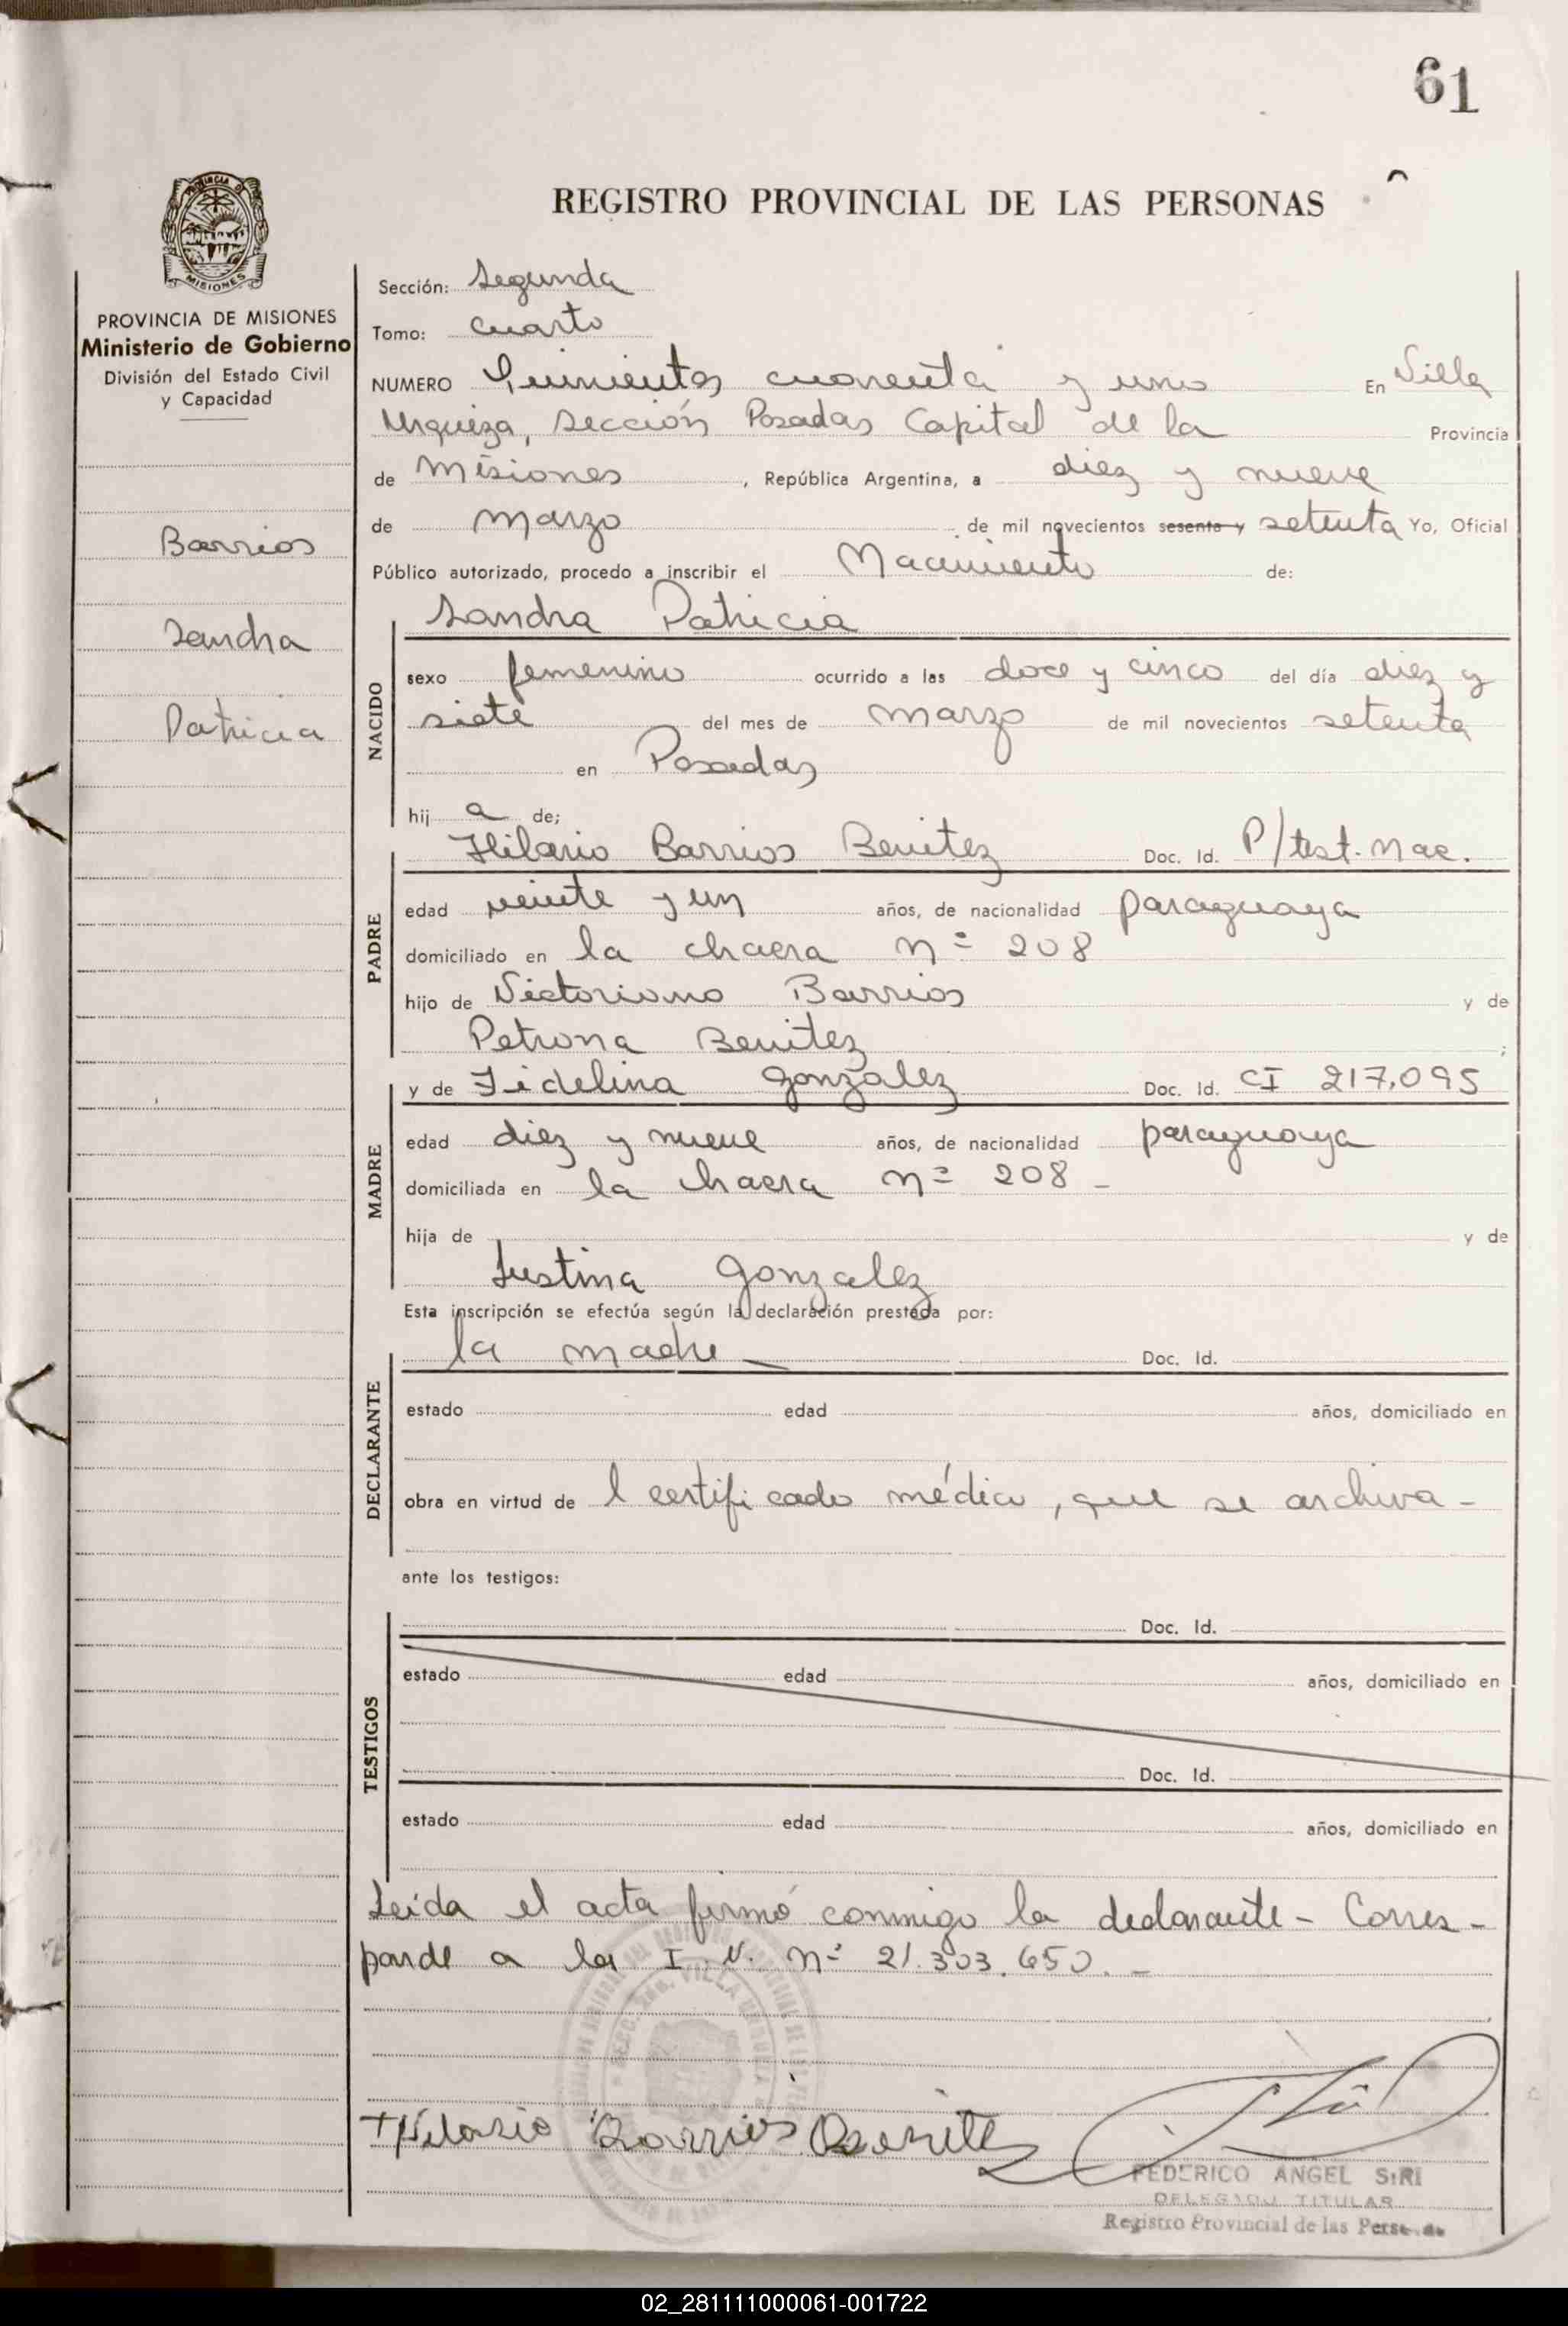 61
REGISTRO PROVINCIAL DE LAS PERSONAS
MISIONES
PROVINCIA DE MISIONES
Ministerio de Gobierno
División del Estado Civil
y Capacidad
Barrios
Sandra
Patricia
Sección: Segunda
Tomo: Cuarto
NUMERO Quinientos cuarenta y uno En Villa
Urquiza, Sección Posadas Capital de la Provincia
de Misiones, República Argentina, a diez y nueve
de marzo de mil novecientos sesenta y setenta Yo, Oficial
Público autorizado, procedo a inscribir el Nacimiento de:
Sandra Patricia
NACIDO
sexo femenino ocurrido a las doce y cinco del día diez y
siete del mes de marzo de mil novecientos setenta
en Posadas
hij a de;
PADRE
Hilario Barrios Benitez Doc. Id. P/test. Nac.
edad veinte y un años, de nacionalidad paraguaya
domiciliado en la chacra nº 208
hijo de Victoriano Barrios y de
Petrona Benitez ;
MADRE
y de Fidelina Gonzalez Doc. Id. CI 217.095
edad diez y nueve años, de nacionalidad paraguaya
domiciliada en la chacra nº 208 -
hija de y de
Justina Gonzalez
Esta inscripción se efectúa según la declaración prestada por:
DECLARANTE
la madre Doc. Id.
estado edad años, domiciliado en
obra en virtud de l certificado médico, que se archiva -
ante los testigos:
TESTIGOS
Doc. Id.
estado edad años, domiciliado en
Doc. Id.
estado edad años, domiciliado en
Leída el acta firmó conmigo la declarante - Corres-
ponde a la I. N. nº 21.303.650. -
Hilario Barrios Benitez
FEDERICO ANGEL SIRI
DELEGADO TITULAR
Registro Provincial de las Personas
02_281111000061-001722